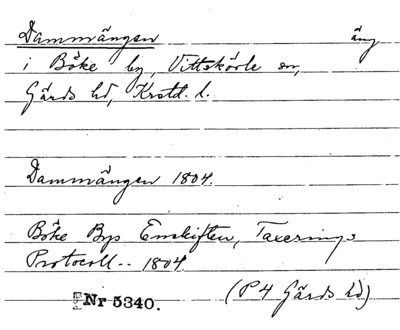 Dammängen äng
i Böke by, Vittskövle sn,
Gärds hd, Krstd. l.
Dammängen 1804.
Böke Bys Enskiften, Taxerings
Protocoll.. 1804
(P4 Gärds hd)
Nr 5340.